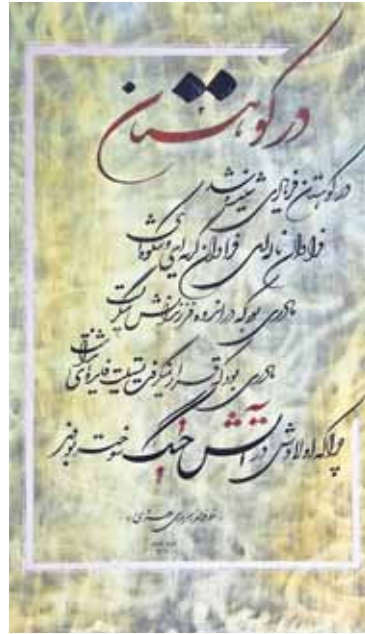 در کوهستان
در کوهستان فریادی شنیده شد
فراوان ناله‌ای فراوان گریه‌ای و شکوه‌ای
مادری بود که در اندوه فرزندانش میگریست
مادری بود که قرار نمیگرفت
چرا که اولادش در آتش جنگ سوخته بودند